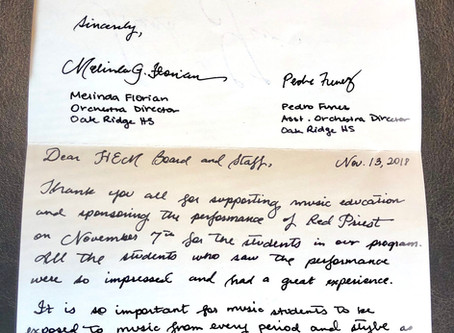 Sincerely,
Melinda G. Florian Pedro Funes
Melinda Florian Pedro Funes
Orchestra Director Asst. Orchestra Director
Oak Ridge HS Oak Ridge HS
Dear HEM Board and Staff, Nov. 13, 2018
Thank you all for supporting music education
and sponsoring the performance of Red Priest
on November 7th for the students in our program.
All the students who saw the performance
were so impressed and had a great experience.
It is so important for music students to be
exposed to music from every period and style as